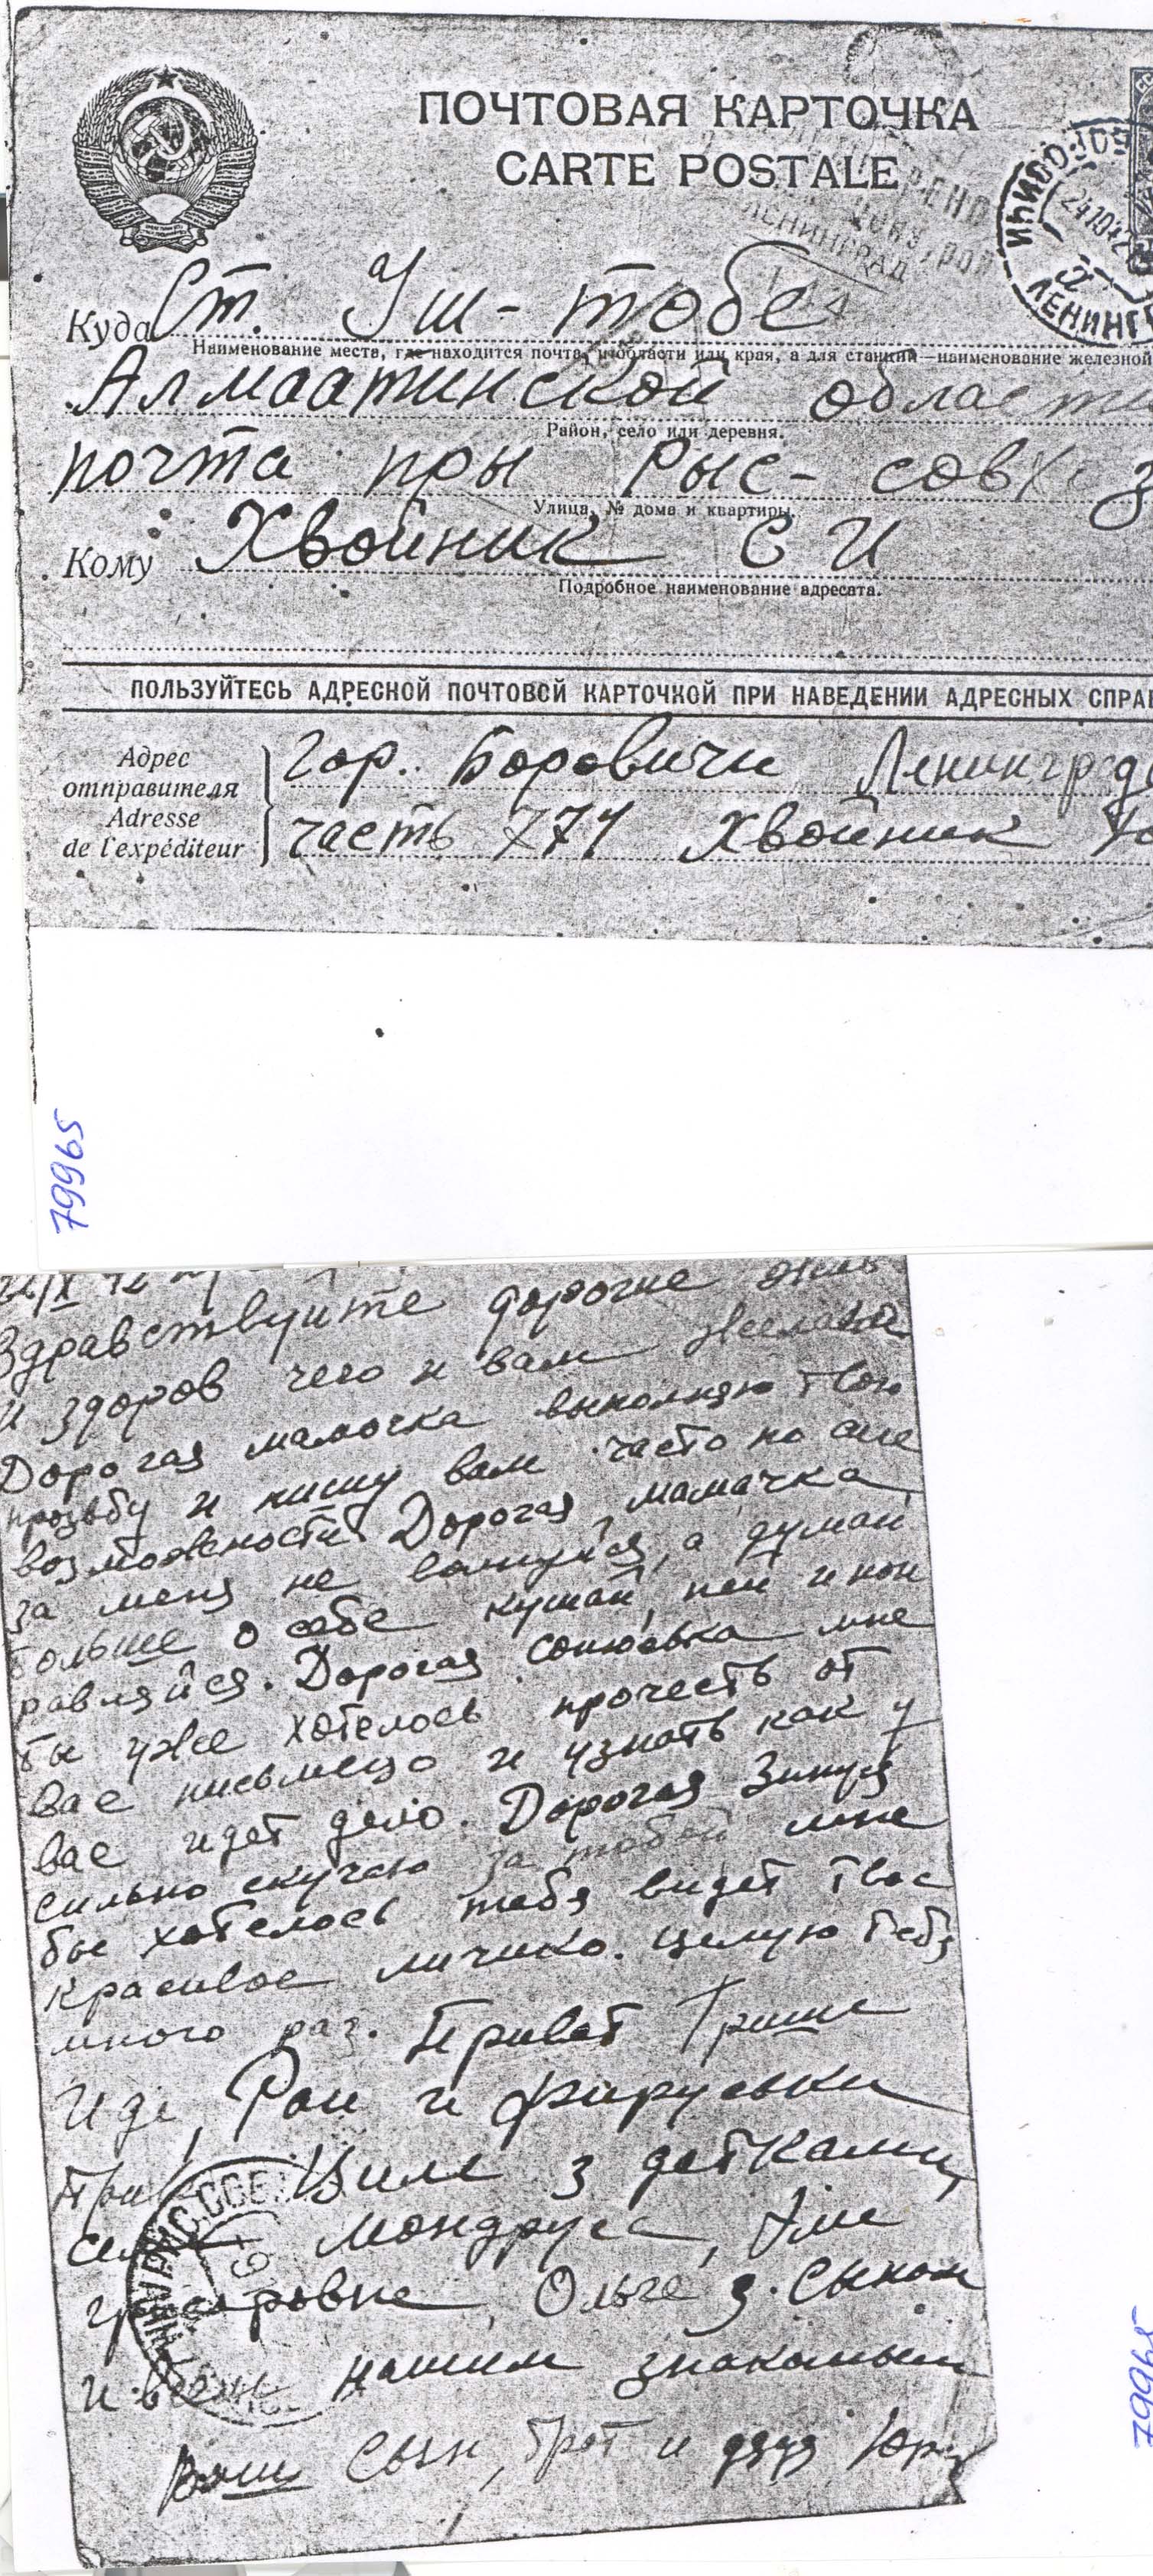 ПОЧТОВАЯ КАРТОЧКА
CARTE POSTALE
ЛЕНИНГРАД
24 10 42
Куда Ст. Уш-тобе
Наименование места, где находится почта, и области или края, а для станций—наименование железной
Алмаатинской области
Район, село или деревня.
почта пры Рыс-совхоз
Улица, № дома и квартиры.
Кому Хвойник С И
Подробное наименование адресата.
ПОЛЬЗУЙТЕСЬ АДРЕСНОЙ ПОЧТОВОЙ КАРТОЧКОЙ ПРИ НАВЕДЕНИИ АДРЕСНЫХ СПРАВ
Адрес отправителя
Adresse de l'expéditeur
Гор. Боровичи Ленинград
часть 771 Хвойник
79965
22/X 42
Здравствуйте дорогие жив
и здоров чего и вам
Дорогая мамочка выполняю твою
прозьбу и пишу вам часто по сле
возможности Дорогая мамачка
за меня не волнуйся, а думай
больше о себе кушай, пей и поп
равляйся. Дорогая Сонюсвка мне
бы уже хотелось прочесть от
вас письмецо и узнать как у
вас идет дело. Дорогая Зинуся
сильно скучаю за тобой мне
бы хотелось тебя видет твое
красивое личико. целую тебя
много раз. Привет Грише
Иде, Раи и Фируськи
Циле з детками,
Мондруса,
Ольге з. Сыном
и всем нашим знакомым
Ваш Сын, брат и дядя Юра
79965